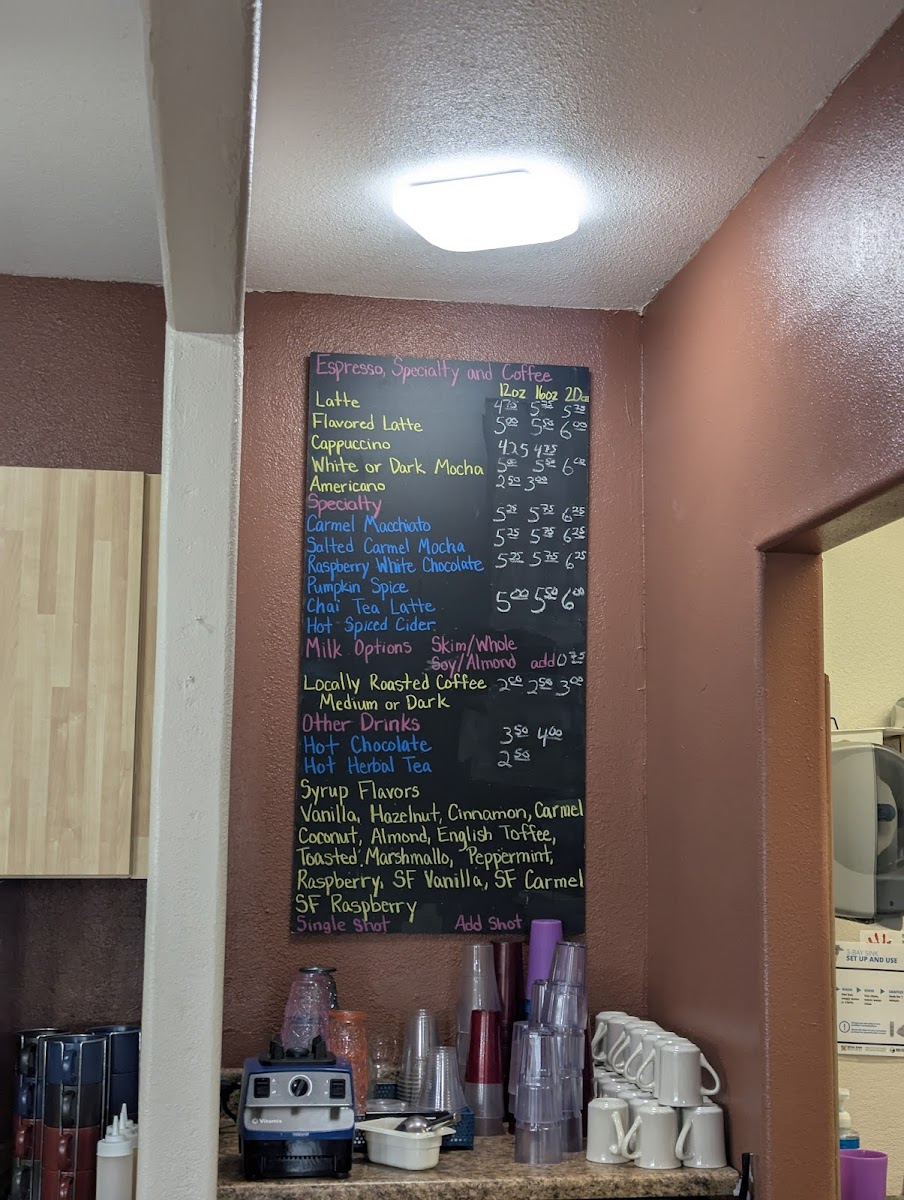 Espresso, Specialty and Coffee
12oz 16oz 20oz
Latte 4.75 5.75 5.75
Flavored Latte 5.00 5.50 6.00
Cappuccino 425 4.75
White or Dark Mocha 5.00 5.50 6.00
Americano 2.50 3.00
Specialty
Carmel Macchiato 5.25 5.75 6.25
Salted Carmel Mocha 5.25 5.75 6.25
Raspberry White Chocolate 5.25 5.75 6.25
Pumpkin Spice
Chai Tea Latte 5.00 5.50 6.00
Hot Spiced Cider
Milk Options Skim/Whole
Soy/Almond add 0.75
Locally Roasted Coffee 2.00 2.50 3.00
Medium or Dark
Other Drinks
Hot Chocolate 3.50 4.00
Hot Herbal Tea 2.50
Syrup Flavors
Vanilla, Hazelnut, Cinnamon, Carmel
Coconut, Almond, English Toffee,
Toasted Marshmallo, Peppermint,
Raspberry, SF Vanilla, SF Carmel
SF Raspberry
Single Shot Add Shot
Vitamix
3-BAY SINK
SET UP AND USE